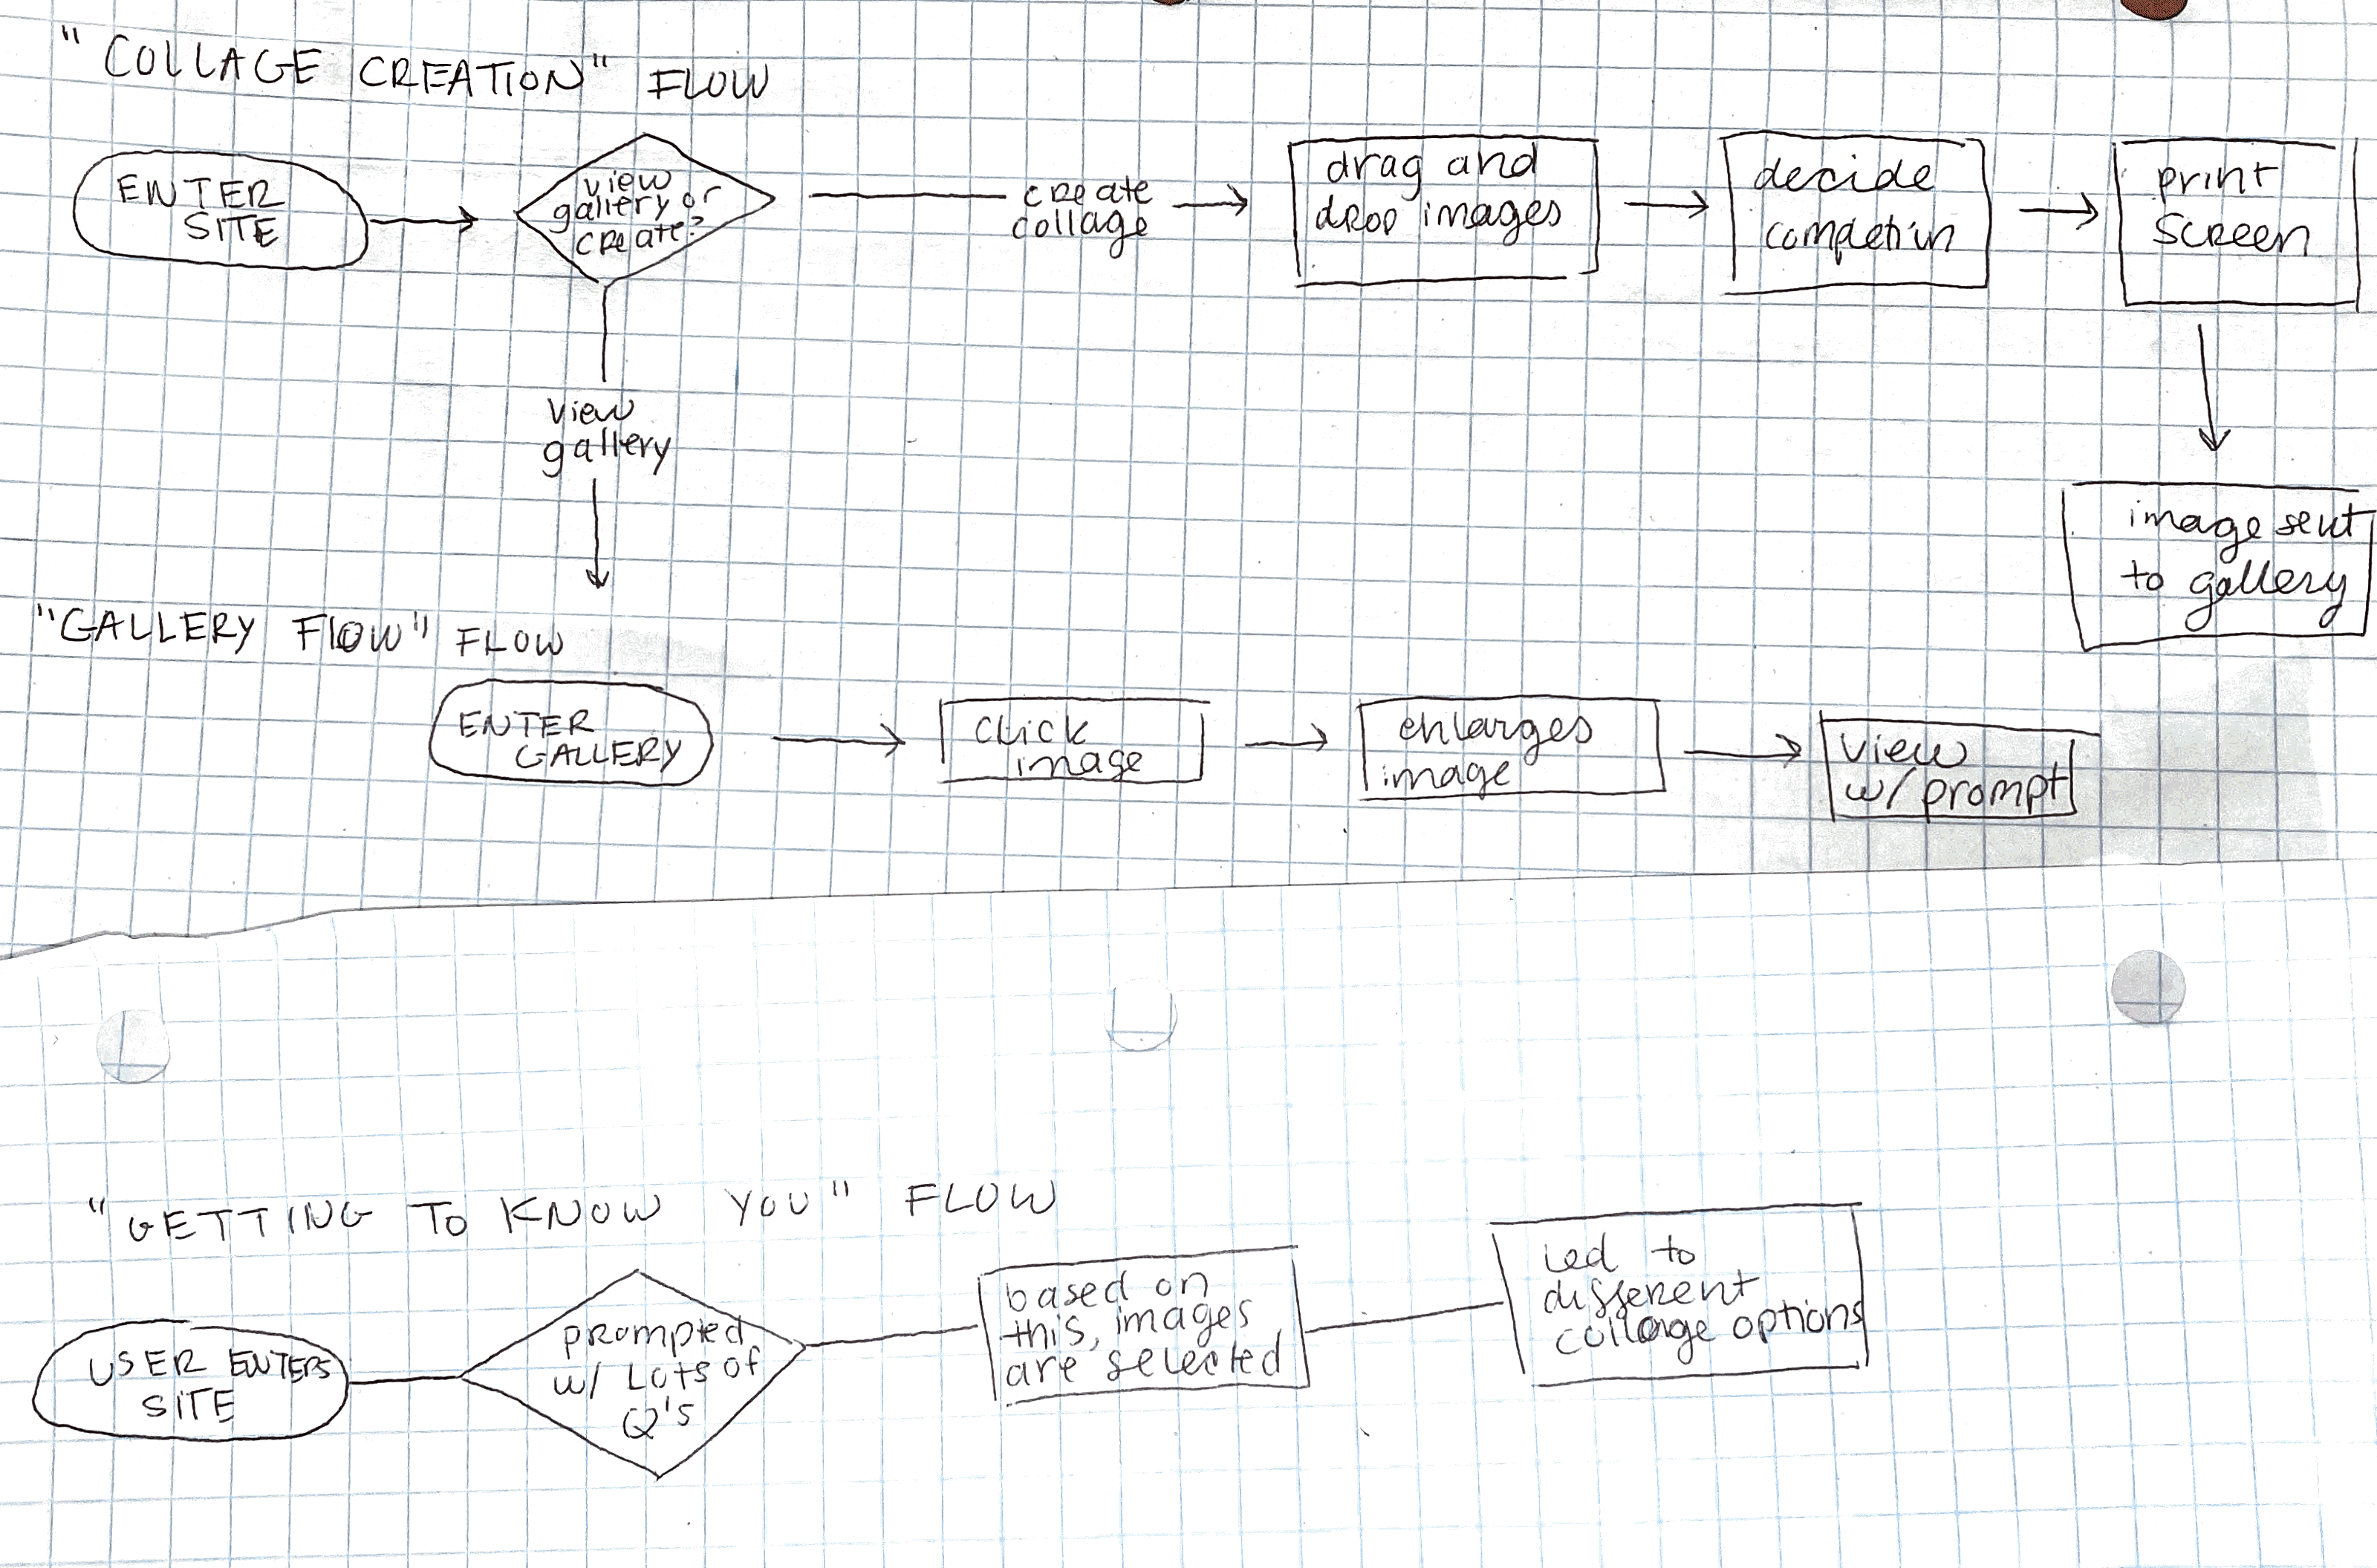 "COLLAGE CREATION" FLOW
ENTER
SITE
view
gallery or
create?
create
collage
drag and
drop images
decide
completion
print
screen
view
gallery
image sent
to gallery
"GALLERY FLOW" FLOW
ENTER
GALLERY
click
image
enlarges
image
view
w/ prompt
"GETTING TO KNOW YOU" FLOW
USER ENTERS
SITE
prompted
w/ Lots of
Q's
based on
this, images
are selected
led to
different
collage options